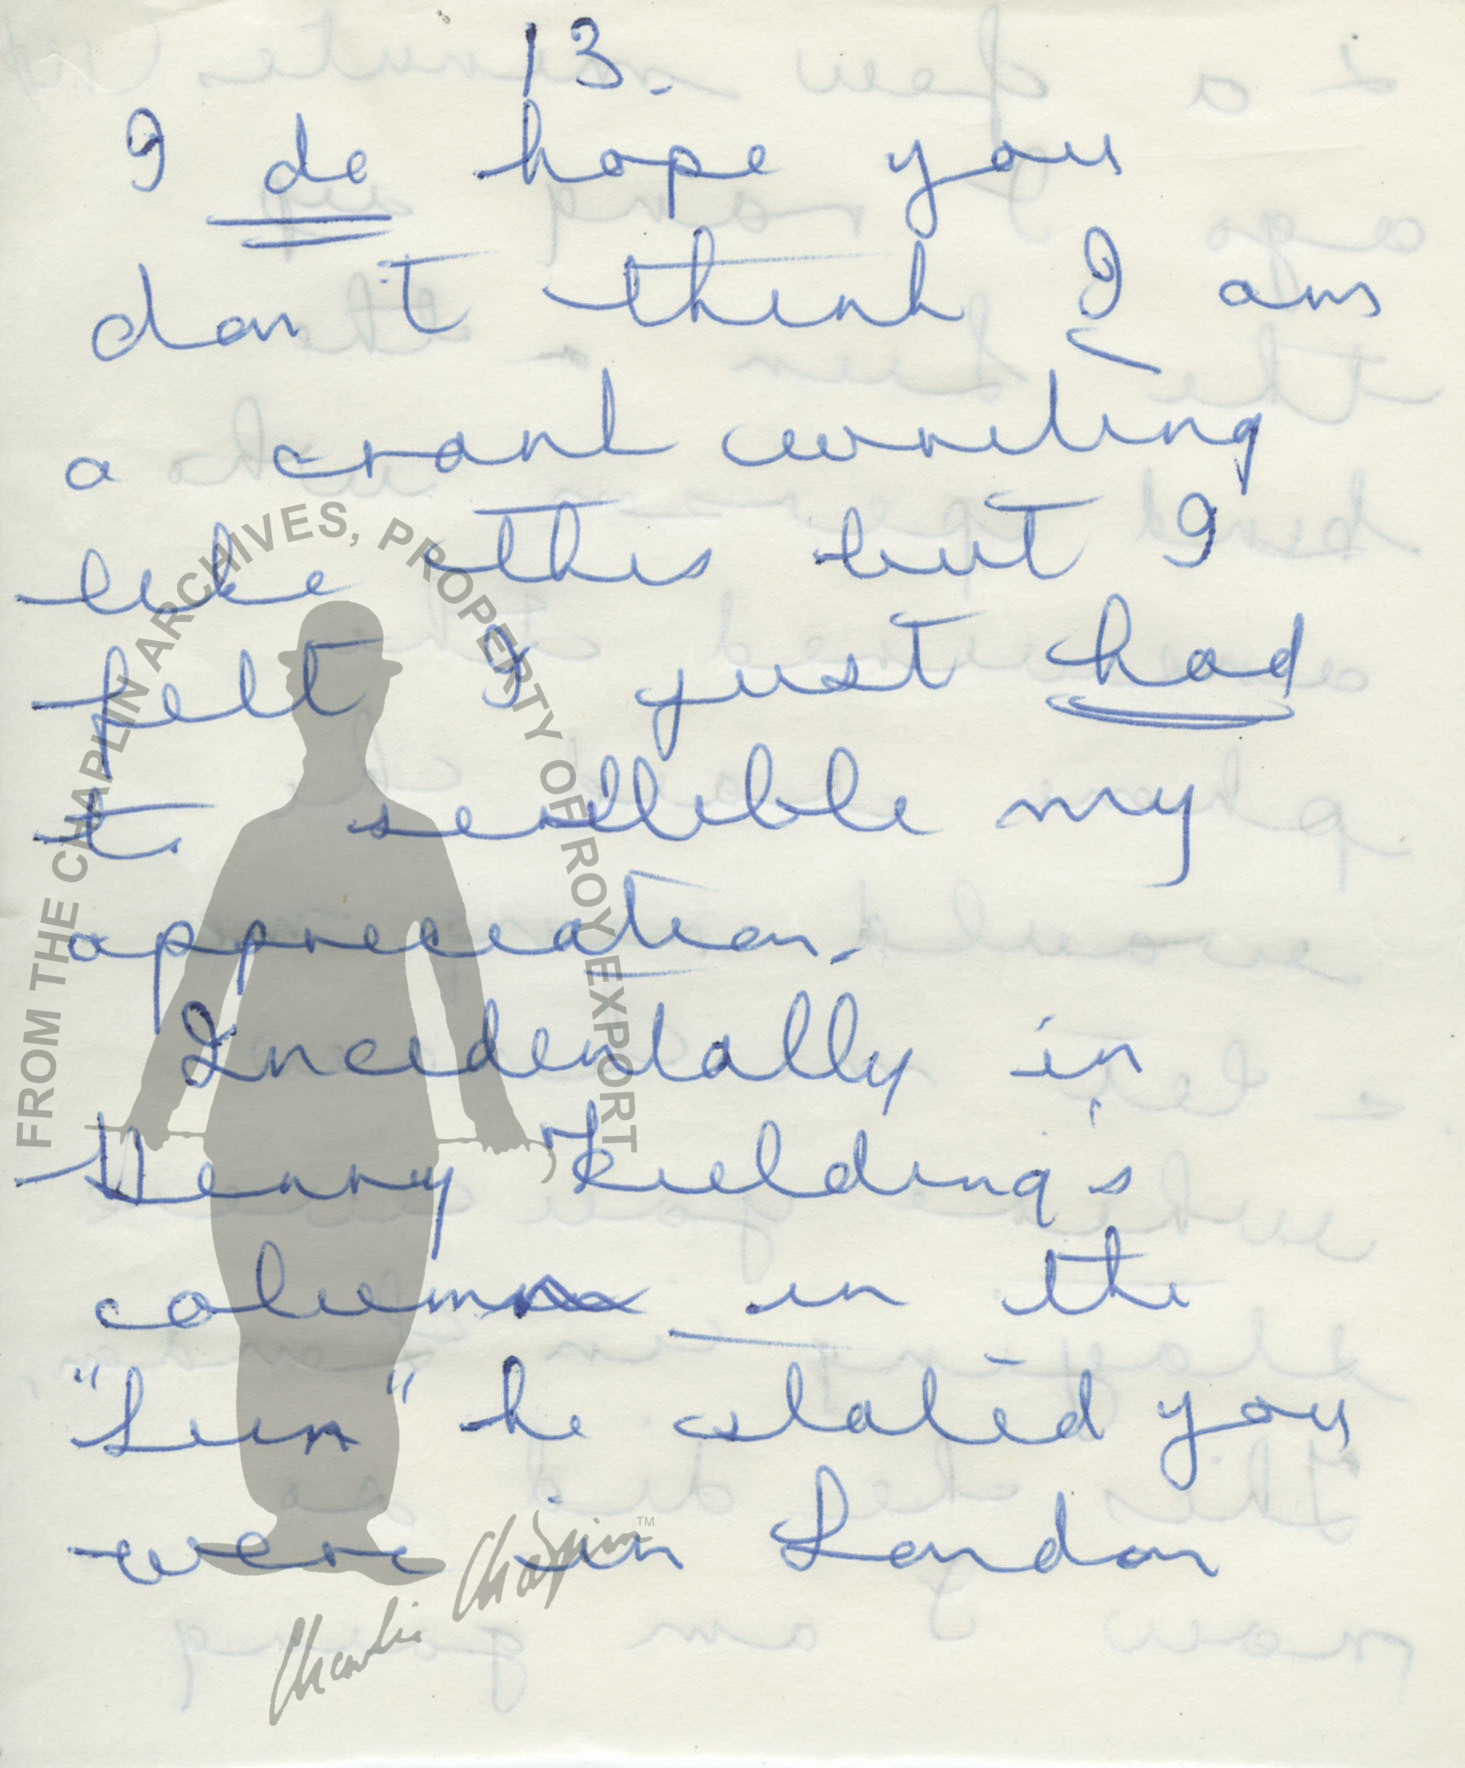 13.
I do hope you
don't think I am
a crank writing
like this but I
felt I just had
to scribble my
appreciation.
Incidentally in
Henry Fielding's
column in the
"Sun" he stated you
were in London
FROM THE CHAPLIN ARCHIVES, PROPERTY OF ROY EXPORT
Charlie Chaplin™